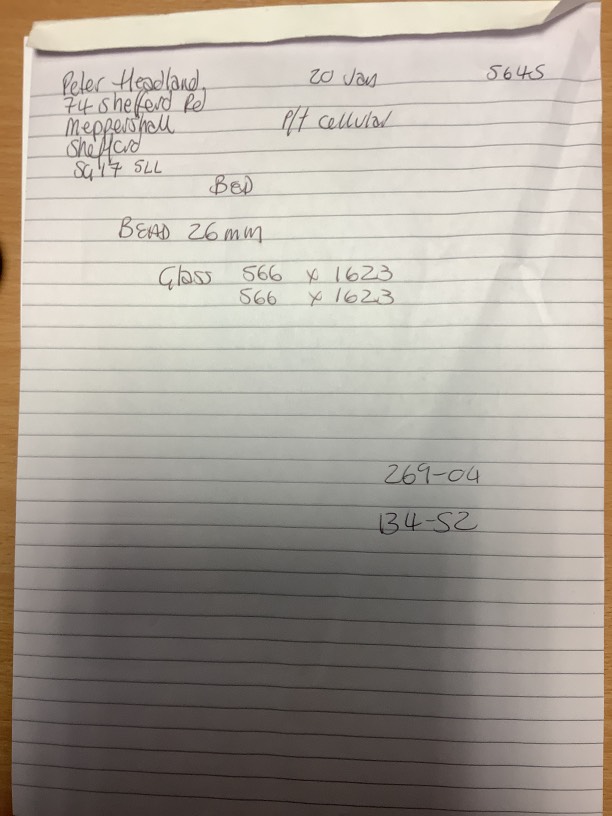 Peter Headland, 20 Jan 5645
74 Shefford Rd
Meppershall P/t cellular
Shefford
SG17 5LL
BED
BEAD 26mm
Glass 566 x 1623
566 x 1623
269-04
134-52